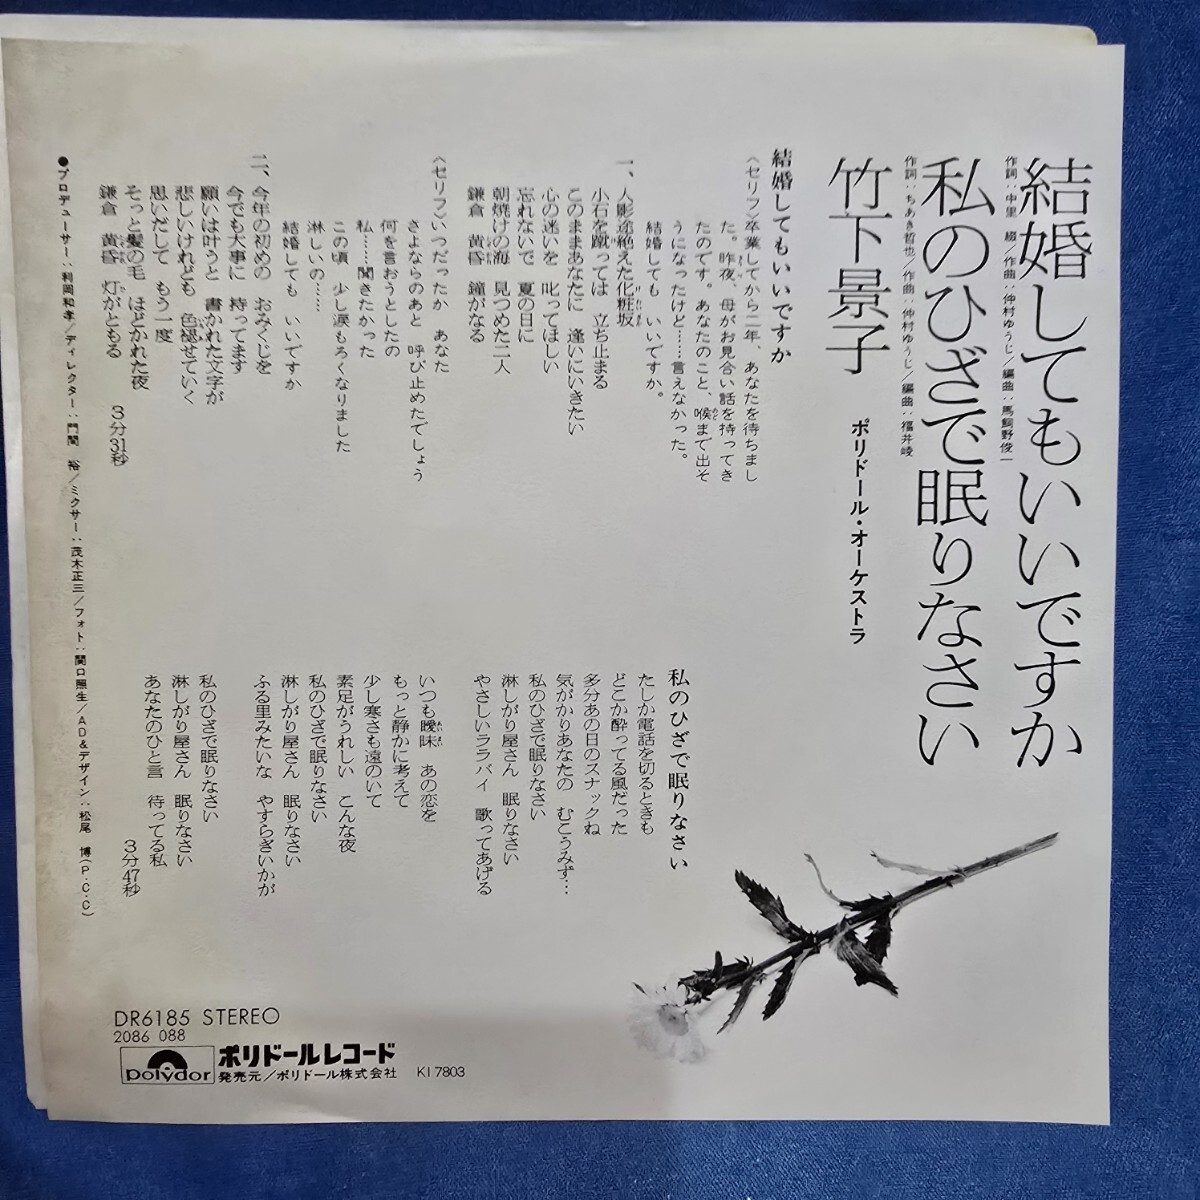 結婚してもいいですか
作詞：中里 綴／作曲：仲村ゆうじ／編曲：馬飼野俊一
私のひざで眠りなさい
作詞：ちあき哲也／作曲：仲村ゆうじ／編曲：福井崚
竹下景子
ポリドール・オーケストラ
結婚してもいいですか
〈セリフ〉卒業してから二年、あなたを待ちまし
た。昨夜、母がお見合い話を持ってき
たのです。あなたのこと、喉まで出そ
うになったけど……言えなかった。
結婚しても いいですか。
一、人影途絶えた化粧坂
小石を蹴っては 立ち止まる
このままあなたに 逢いにいきたい
心の迷いを 叱ってほしい
忘れないで 夏の日に
朝焼けの海 見つめた二人
鎌倉 黄昏 鐘がなる
〈セリフ〉いつだったか あなた
さよならのあと 呼び止めたでしょう
何を言おうとしたの
私……聞きたかった
この頃 少し涙もろくなりました
淋しいの……
結婚しても いいですか
二、今年の初めの おみくじを
今でも大事に 持ってます
願いは叶うと 書かれた文字が
悲しいけれども 色褪せていく
思いだして もう一度
そっと髪の毛 ほどかれた夜
鎌倉 黄昏 灯がともる
3分31秒
私のひざで眠りなさい
たしか電話を切るときも
どこか酔ってる風だった
多分あの日のスナックね
気がかりあなたの むこうみず…
私のひざで眠りなさい
淋しがり屋さん 眠りなさい
やさしいララバイ 歌ってあげる
いつも曖昧 あの恋を
もっと静かに考えて
少し寒さも遠のいて
素足がうれしい こんな夜
私のひざで眠りなさい
淋しがり屋さん 眠りなさい
ふる里みたいな やすらぎいかが
私のひざで眠りなさい
淋しがり屋さん 眠りなさい
あなたのひと言 待ってる私
3分47秒
●プロデューサー：利岡和孝／ディレクター：門間 裕／ミクサー：茂木正三／フォト：関口照生／AD&デザイン：松尾 博(P.C.C)
DR6185 STEREO
2086 088
polydor ポリドールレコード
発売元／ポリドール株式会社 KI7803